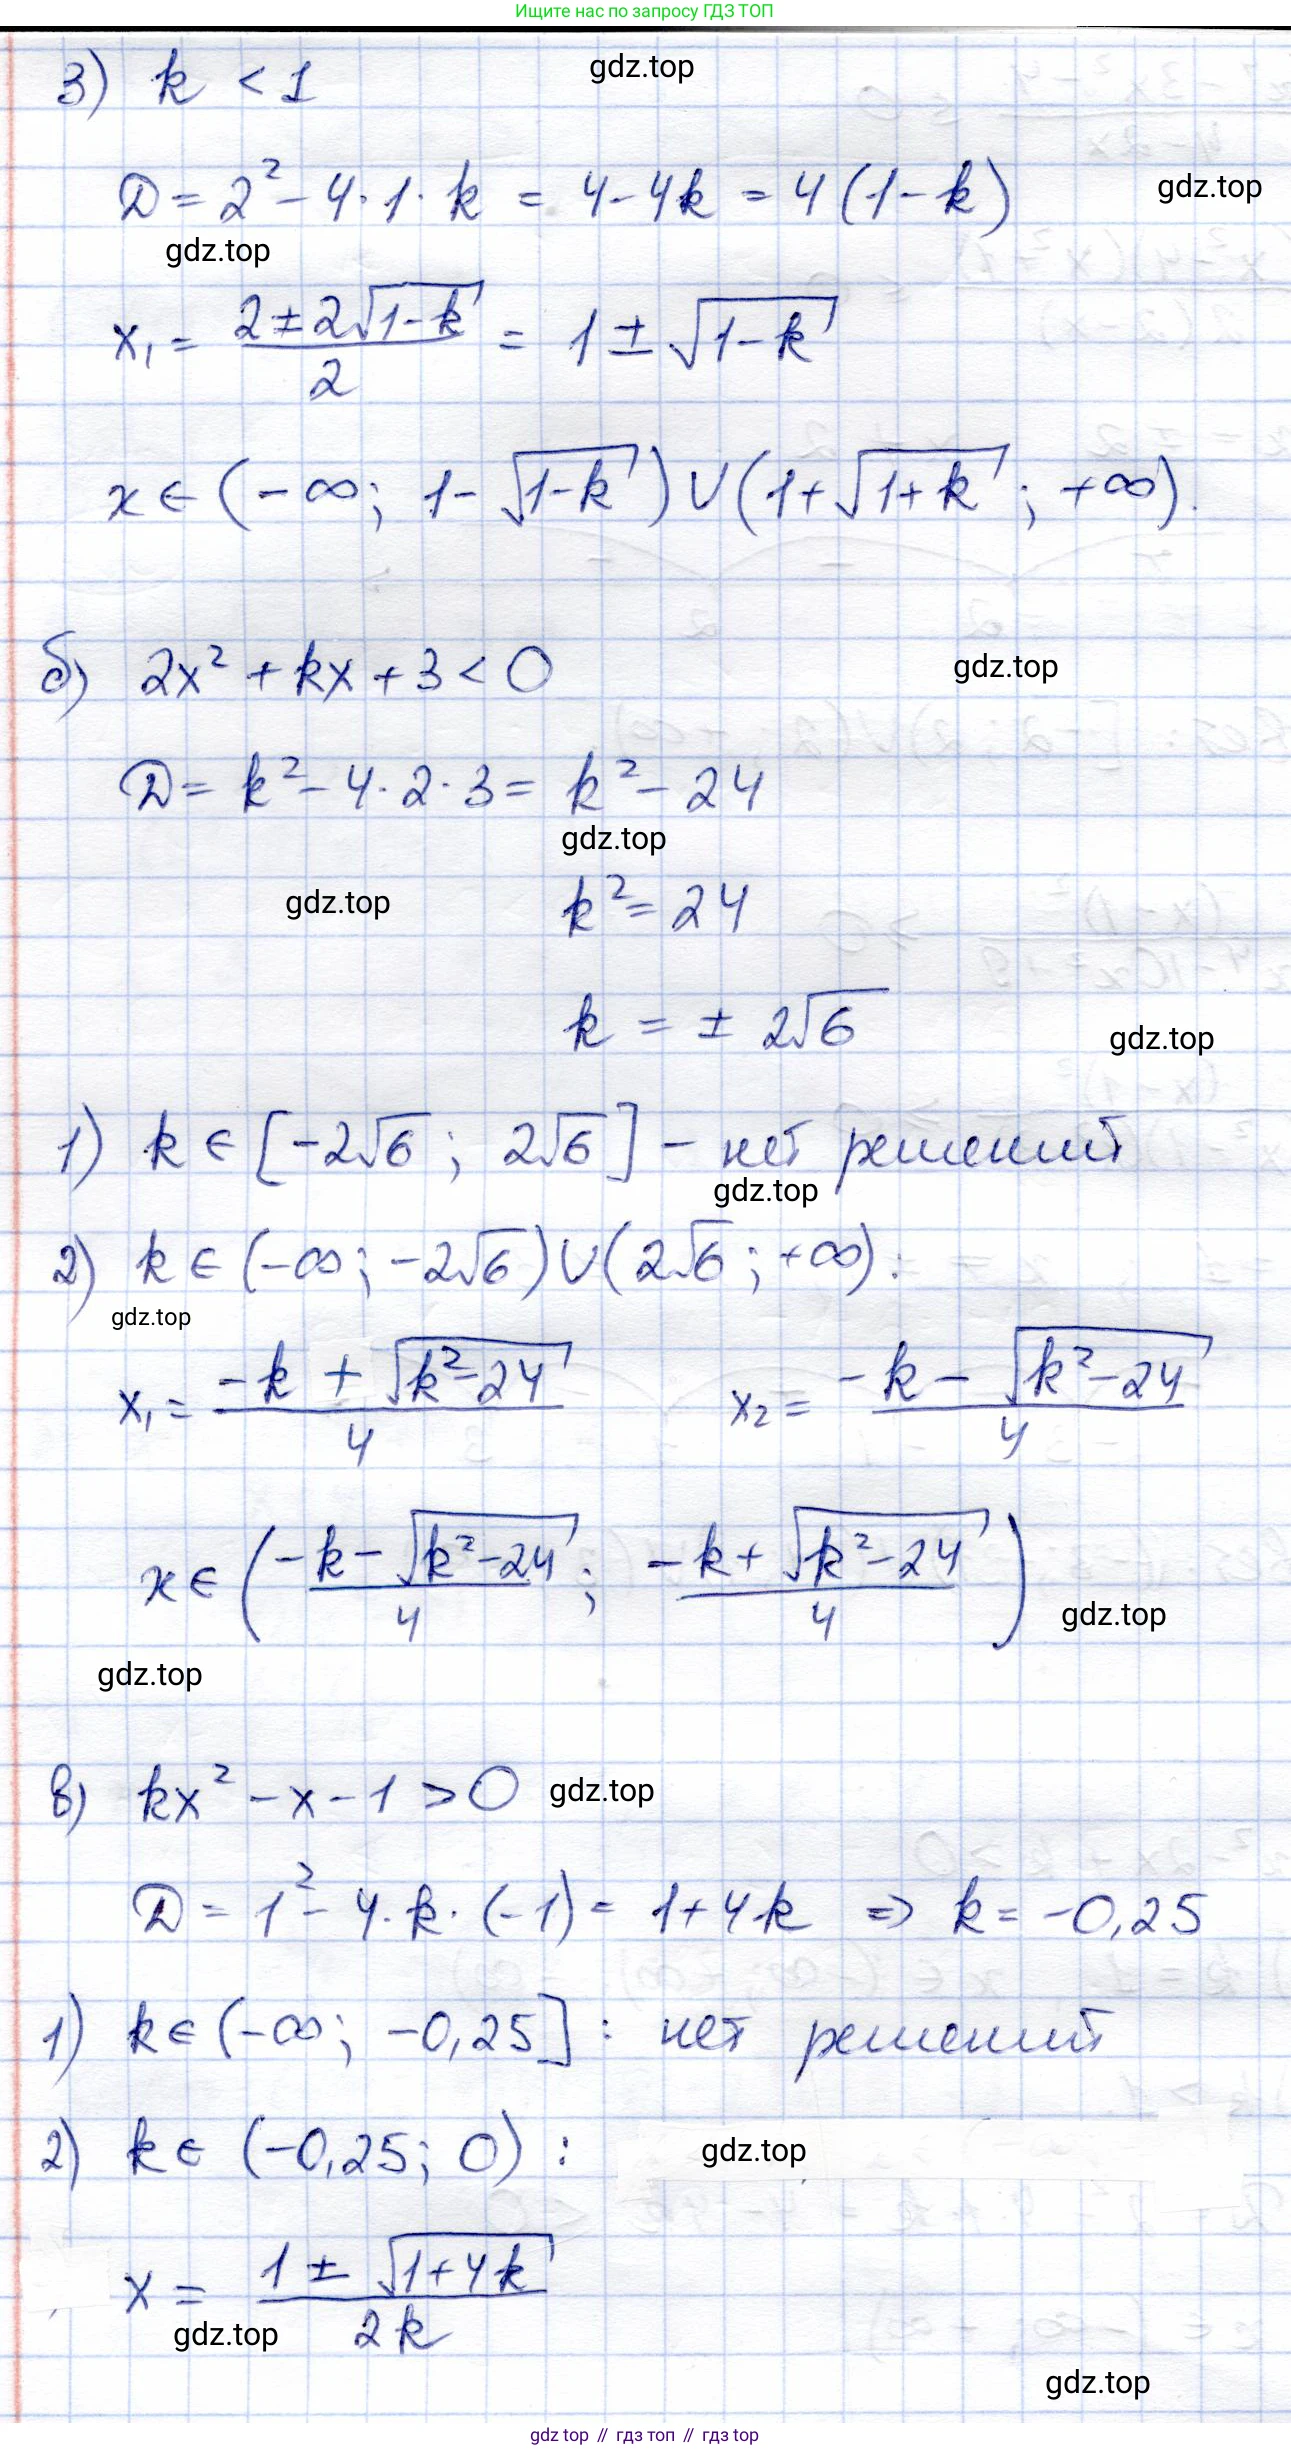 Ищите нас по запросу ГДЗ ТОП
3) k < 1
gdz.top
D = 2² - 4·1·k = 4 - 4k = 4(1-k)
gdz.top
gdz.top
x₁ = (2 ± 2√(1-k))/2 = 1 ± √(1-k)
x ∈ (-∞; 1 - √(1-k)) ∪ (1 + √(1+k); +∞).
б) 2x² + kx + 3 < 0
gdz.top
D = k² - 4·2·3 = k² - 24
gdz.top
gdz.top
k² = 24
k = ± 2√6
gdz.top
1) k ∈ [-2√6; 2√6] - нет решений
gdz.top
2) k ∈ (-∞; -2√6) ∪ (2√6; +∞):
gdz.top
x₁ = (-k + √(k²-24))/4 x₂ = (-k - √(k²-24))/4
x ∈ ((-k - √(k²-24))/4; (-k + √(k²-24))/4)
gdz.top
gdz.top
в) kx² - x - 1 > 0
gdz.top
D = 1² - 4·k·(-1) = 1 + 4k ⇒ k = -0,25
1) k ∈ (-∞; -0,25]: нет решений
2) k ∈ (-0,25; 0):
gdz.top
x = (1 ± √(1+4k))/2k
gdz.top
gdz.top
gdz top // гдз топ // гдз top